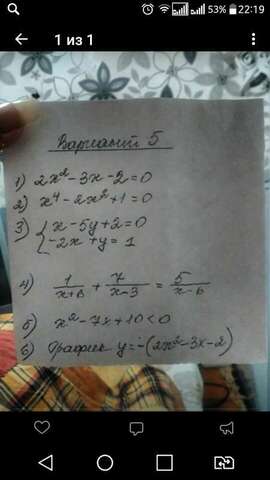 53% 22:19
1 из 1
Вариант 5
1) 2x²-3x-2=0
2) x⁴-2x²+1=0
3) { x-5y+2=0
-2x+y=1
4) 1/(x+6) + 7/(x-3) = 5/(x-6)
5) x²-7x+10<0
6) График y=-(2x²-3x-2)